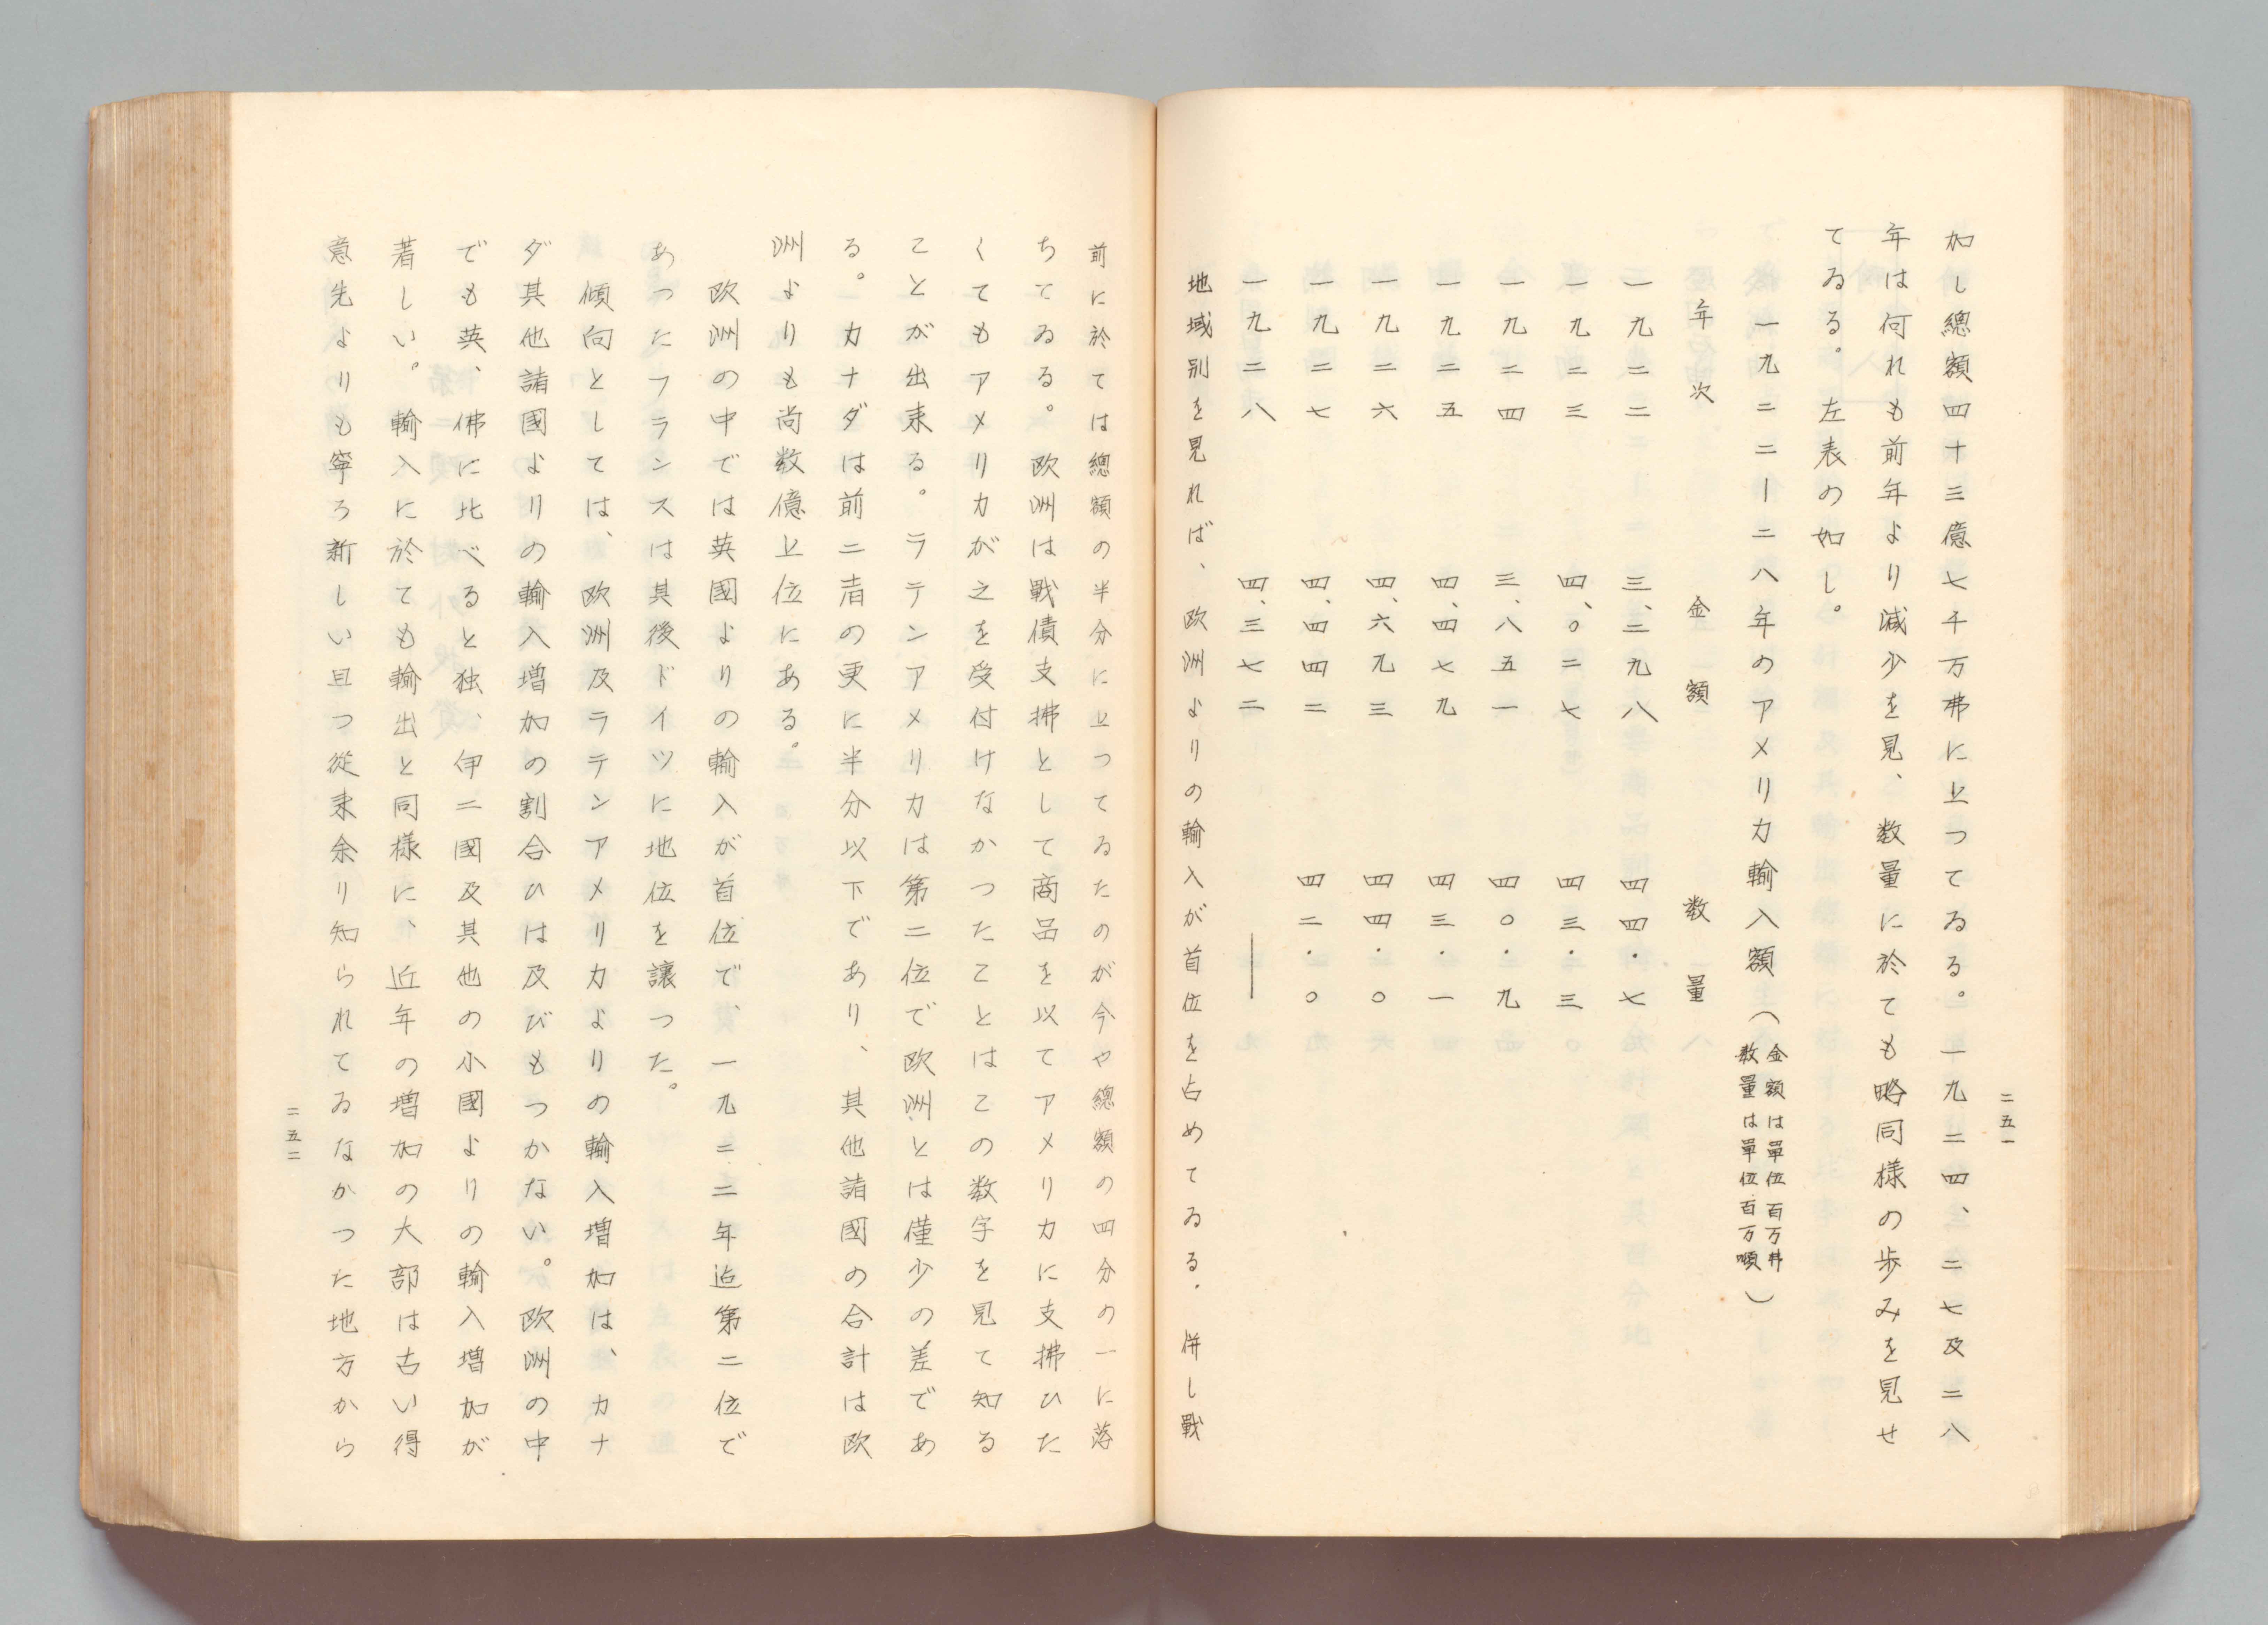 二五一
加し總額四十三億七千万弗に上つてゐる。一九二四、二七及二八
年は何れも前年より減少を見、数量に於ても略同様の歩みを見せ
てゐる。左表の如し。
一九二二ー二八年のアメリカ輸入額（金額は單位百万弗
数量は單位百万噸）
年次　金額　数量
一九二二　三、二九八　四四・七
一九二三　四、〇二七　四三・三
一九二四　三、八五一　四〇・九
一九二五　四、四七九　四三・一
一九二六　四、六九三　四四・〇
一九二七　四、四四二　四二・〇
一九二八　四、三七二　——
地域別を見れば、欧洲よりの輸入が首位を占めてゐる。併し戰
前に於ては總額の半分に上つてゐたのが今や總額の四分の一に落
ちてゐる。欧洲は戰債支拂として商品を以てアメリカに支拂ひた
くてもアメリカが之を受付けなかつたことはこの数字を見て知る
ことが出来る。ラテンアメリカは第二位で欧洲とは僅少の差であ
る。カナダは前二者の更に半分以下であり、其他諸國の合計は欧
洲よりも尚数億上位にある。
欧洲の中では英國よりの輸入が首位で、一九二二年迄第二位で
あつたフランスは其後ドイツに地位を讓つた。
傾向としては、欧洲及ラテンアメリカよりの輸入増加は、カナ
ダ其他諸國よりの輸入増加の割合ひは及びもつかない。欧洲の中
でも英、佛に比べると独、伊二國及其他の小國よりの輸入増加が
著しい。輸入に於ても輸出と同様に、近年の増加の大部は古い得
意先よりも寧ろ新しい且つ従来余り知られてゐなかつた地方から
二五二